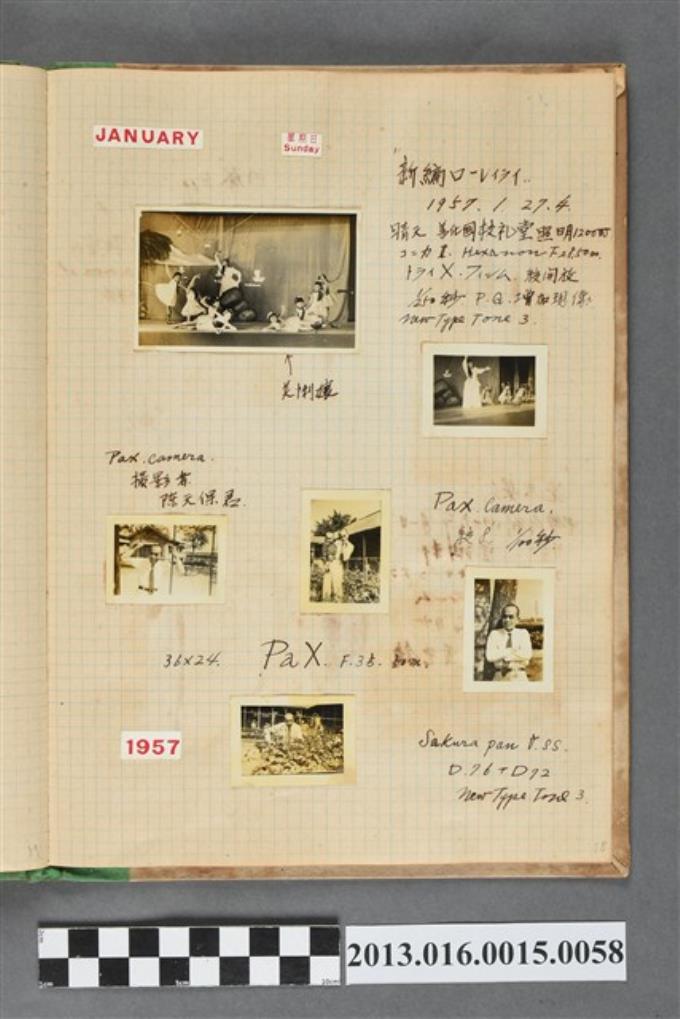 JANUARY
星期日
Sunday
新編ローレライ
1957. 1 27. 4.
晴天 国校礼堂 照明1200W
コニカ Ⅱ. Hexanon F.2.8 50m.
トライX. フィルム. 開放
1/50秒 P.Q. 增加現像
New Type Tone 3.
Pax. camera.
攝影者
陈天保君.
Pax. Camera.
1/100秒
36x24. PaX. F.35.
1957
Sakura pan SS.
D.76 + D72
New Type Tone 3.
2013.016.0015.0058